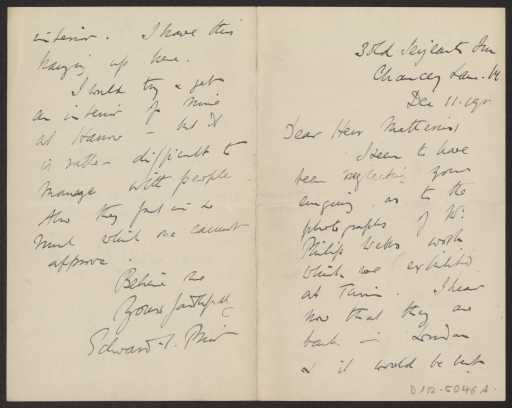 3 Old Serjeants Inn
Chancery Lane. W
Dec 11. 190
Dear Herr Muthesius
I seem to have
been neglecting your
enquiry as to the
photographs of Mr
Philip Webbs work
which we exhibited
at Turin. I hear
now that they are
back in London
& it would be best
interior. I have this
hanging up here.
I would try & get
an interior of mine
at Harrow - but it
is rather difficult to
manage with people
Also they put in so
much which one cannot
approve.
Believe me
Yours faithfully
Edward S. Prior
D 102-5046 A